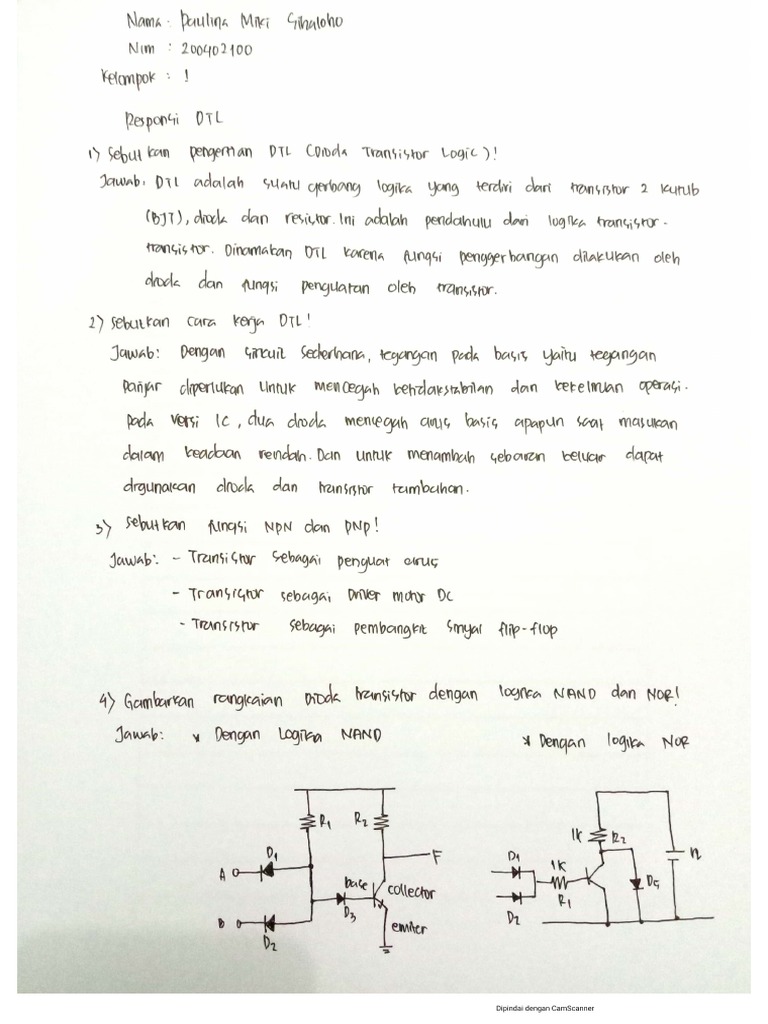 Nama : Paulina Miki Sihaloho
Nim : 200402100
Kelompok : 1
Responsi DTL
1) Sebutkan pengertian DTL (Dioda Transistor Logic)!
Jawab : DTL adalah suatu gerbang logika yang terdiri dari transistor 2 kutub
(BJT), dioda dan resistor. Ini adalah pendahulu dari logika transistor-
transistor. Dinamakan DTL karena fungsi penggerbangan dilakukan oleh
dioda dan fungsi penguatan oleh transistor.
2) Sebutkan cara kerja DTL!
Jawab: Dengan sircuit sederhana, tegangan pada basis yaitu tegangan
Panjar diperlukan untuk mencegah ketidakstabilan dan kekeliruan operasi.
Pada versi IC, dua dioda mencegah arus basis apapun saat masukan
dalam keadaan rendah. Dan untuk menambah sebaran keluar dapat
digunakan dioda dan transistor tambahan.
3) Sebutkan fungsi NPN dan PNP!
Jawab: - Transistor sebagai penguat arus
- Transistor sebagai Driver motor DC
- Transistor sebagai pembangkit sinyal flip-flop
4) Gambarkan rangkaian Dioda transistor dengan logika NAND dan NOR!
Jawab: * Dengan Logika NAND
* Dengan logika NOR
R1
R2
A
D1
F
base
collector
D3
B
D2
emiter
1k
R2
D1
1k
R1
D5
n
D2
Dipindai dengan CamScanner